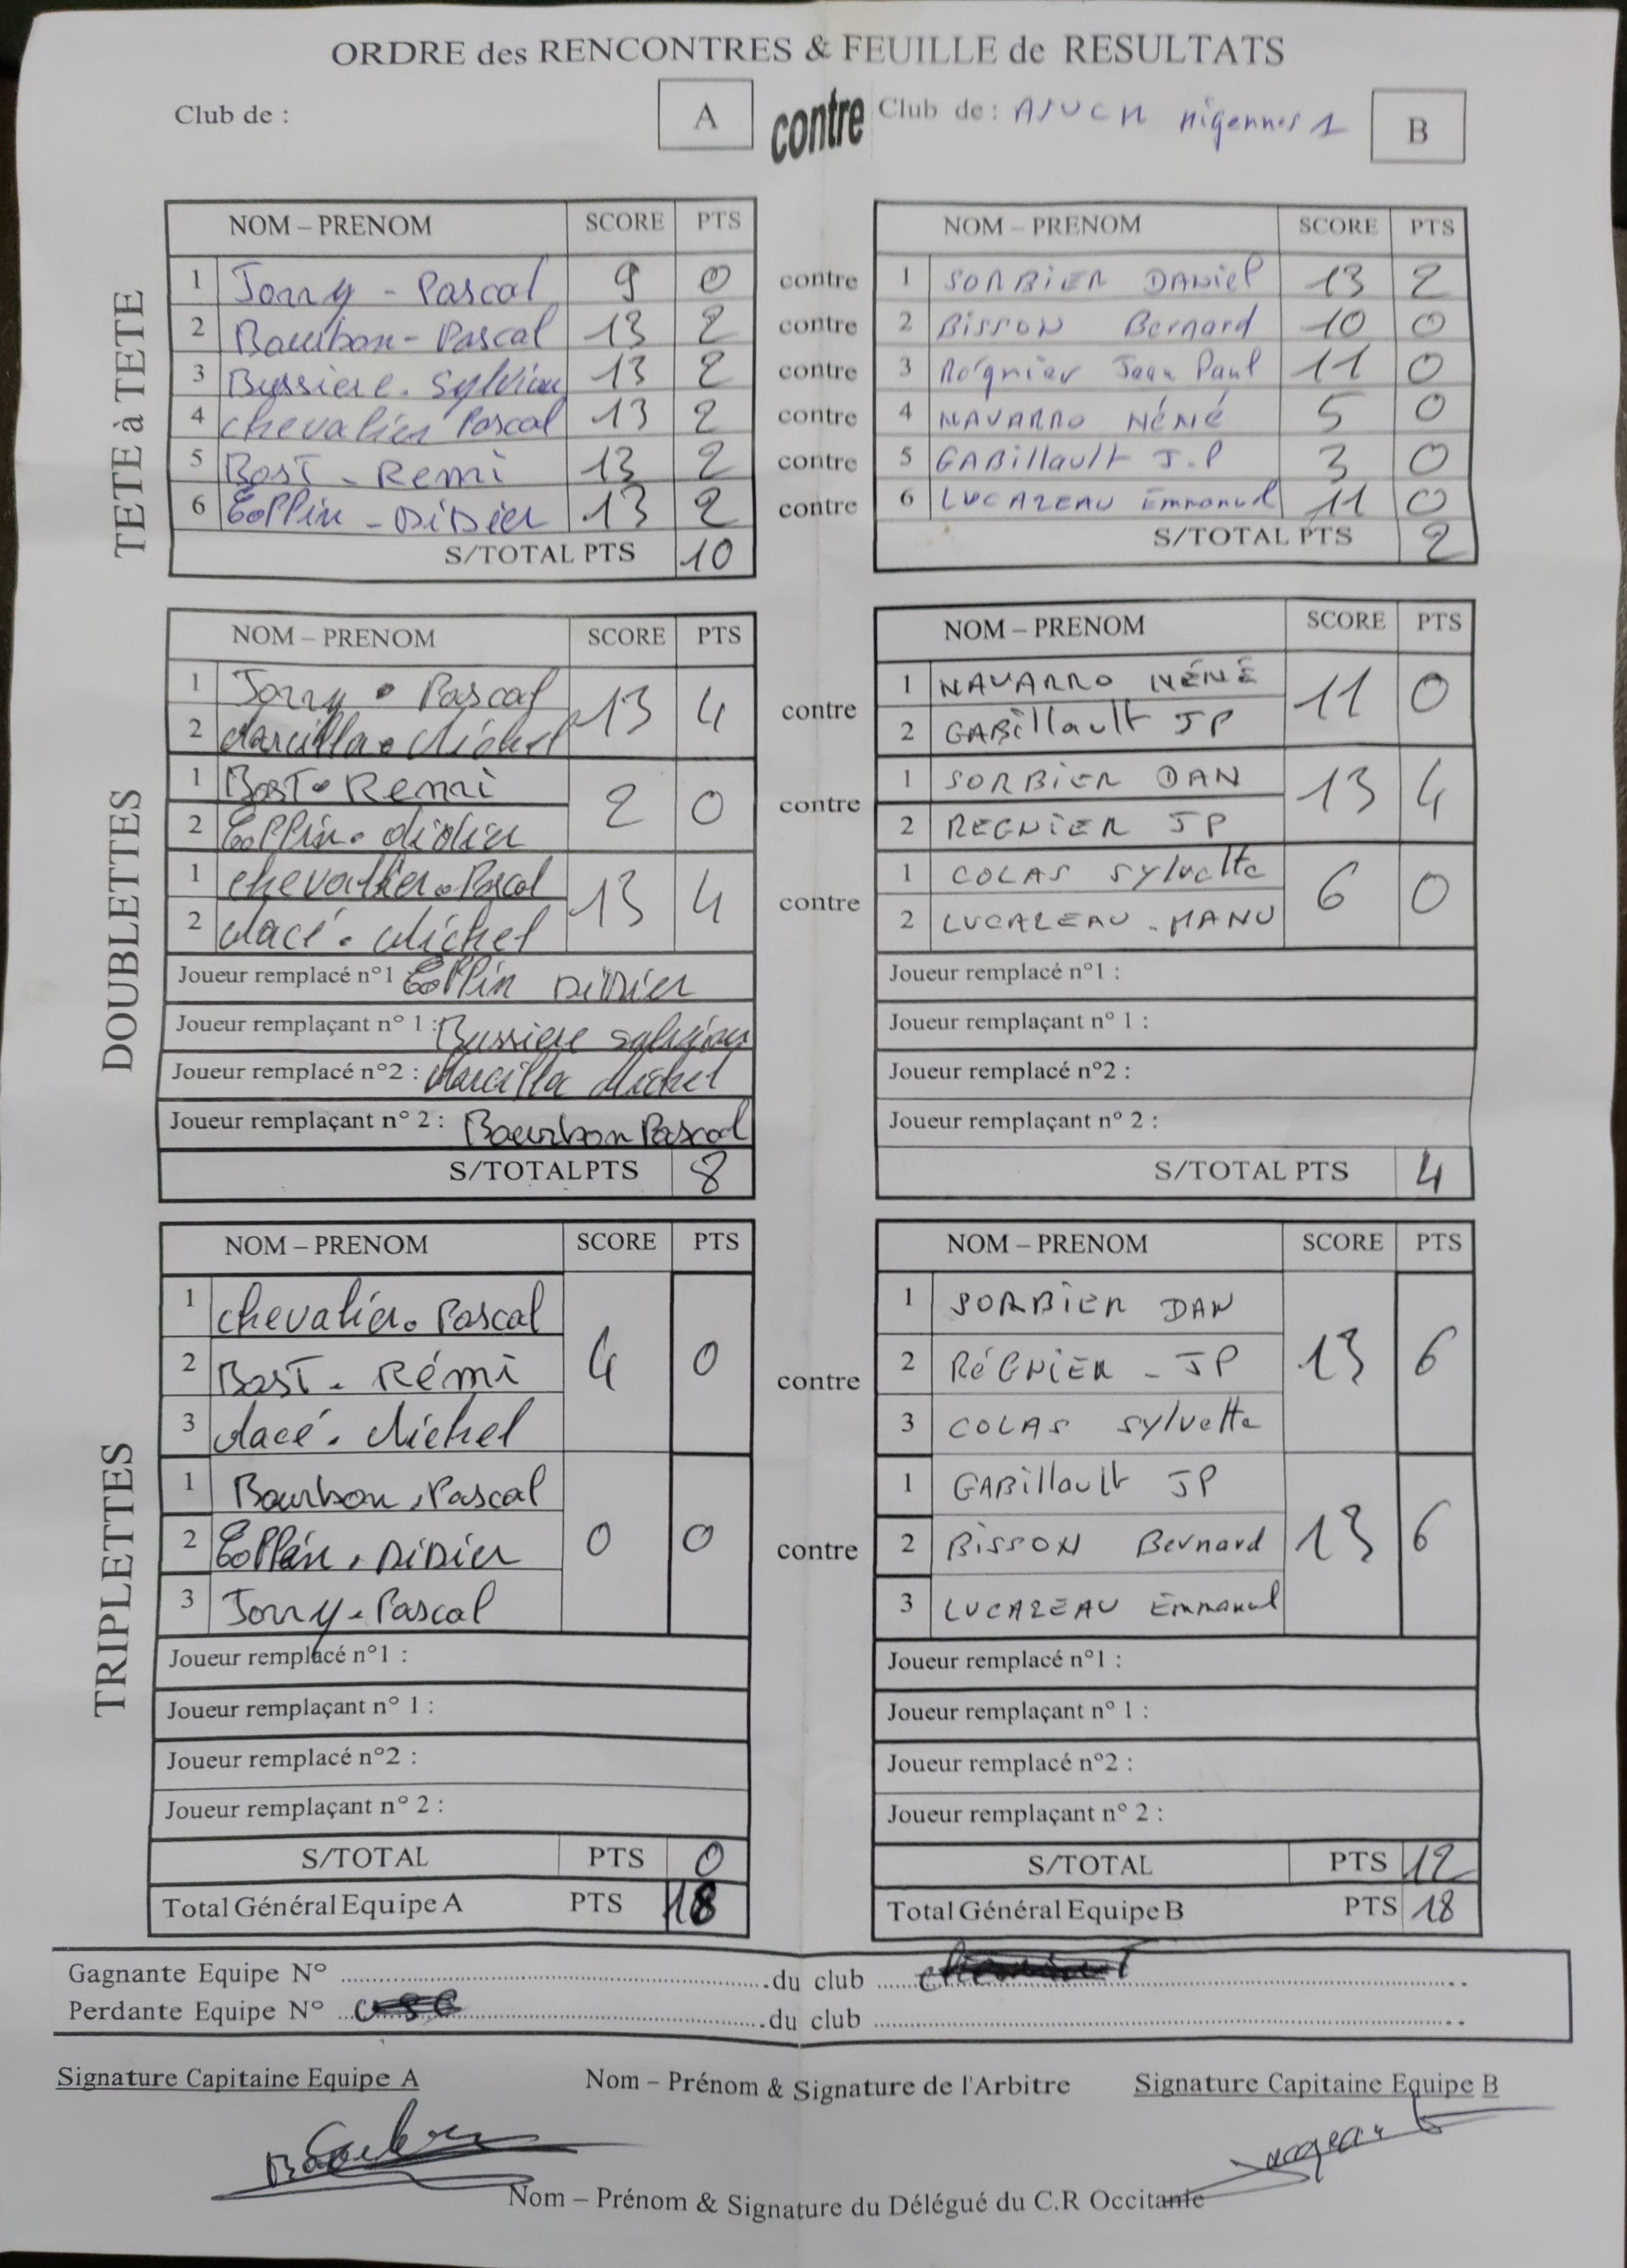 ORDRE des RENCONTRES & FEUILLE de RESULTATS
Club de : A contre Club de : AJUCM Migennes 1 B
TETE à TETE
NOM – PRENOM SCORE PTS NOM – PRENOM SCORE PTS
1 Jorry - Pascal 9 0 contre 1 SORBIER DANiel 13 2
2 Bourbon - Pascal 13 2 contre 2 BISSON Bernard 10 0
3 Bussiere . Sylvian 13 2 contre 3 Régnier Jean Paul 11 0
4 chevalier Pascal 13 2 contre 4 NAVARRO NÉNÉ 5 0
5 BosT - Remi 13 2 contre 5 GABillault J.P 3 0
6 - DiDier 13 2 contre 6 LUCAZEAU Emmanuel 11 0
S/TOTAL PTS 10 S/TOTAL PTS 2
DOUBLETTES
NOM – PRENOM SCORE PTS NOM – PRENOM SCORE PTS
1 Jorry . Pascal 13 4 contre 1 NAVARRO NÉNÉ 11 0
2 Marcilla . Michel 2 GABillault JP
1 BosT . Remi 2 0 contre 1 SORBIER DAN 13 4
2 didier 2 REGNIER JP
1 chevallier . Pascal 13 4 contre 1 COLAS Sylvette 6 0
2 Macé . Michel 2 LUCAZEAU . MANU
Joueur remplacé n°1 DiDier Joueur remplacé n°1 :
Joueur remplaçant n° 1 : Bussiere Sylvian Joueur remplaçant n° 1 :
Joueur remplacé n°2 : Marcilla Michel Joueur remplacé n°2 :
Joueur remplaçant n° 2 : Bourbon Pascal Joueur remplaçant n° 2 :
S/TOTAL PTS 8 S/TOTAL PTS 4
TRIPLETTES
NOM – PRENOM SCORE PTS NOM – PRENOM SCORE PTS
1 chevalier . Pascal 1 SORBIER DAN
2 BosT . Rémi 4 0 contre 2 RéGNIER - JP 13 6
3 Macé . Michel 3 COLAS Sylvette
1 Bourbon . Pascal 1 GABillault JP
2 . DiDier 0 0 contre 2 BISSON Bernard 13 6
3 Jorry . Pascal 3 LUCAZEAU Emmanuel
Joueur remplacé n°1 : Joueur remplacé n°1 :
Joueur remplaçant n° 1 : Joueur remplaçant n° 1 :
Joueur remplacé n°2 : Joueur remplacé n°2 :
Joueur remplaçant n° 2 : Joueur remplaçant n° 2 :
S/TOTAL PTS 0 S/TOTAL PTS 12
Total Général Equipe A PTS 18 Total Général Equipe B PTS 18
Gagnante Equipe N° du club
Perdante Equipe N° du club
Signature Capitaine Equipe A Nom – Prénom & Signature de l'Arbitre Signature Capitaine Equipe B
Nom – Prénom & Signature du Délégué du C.R Occitanie